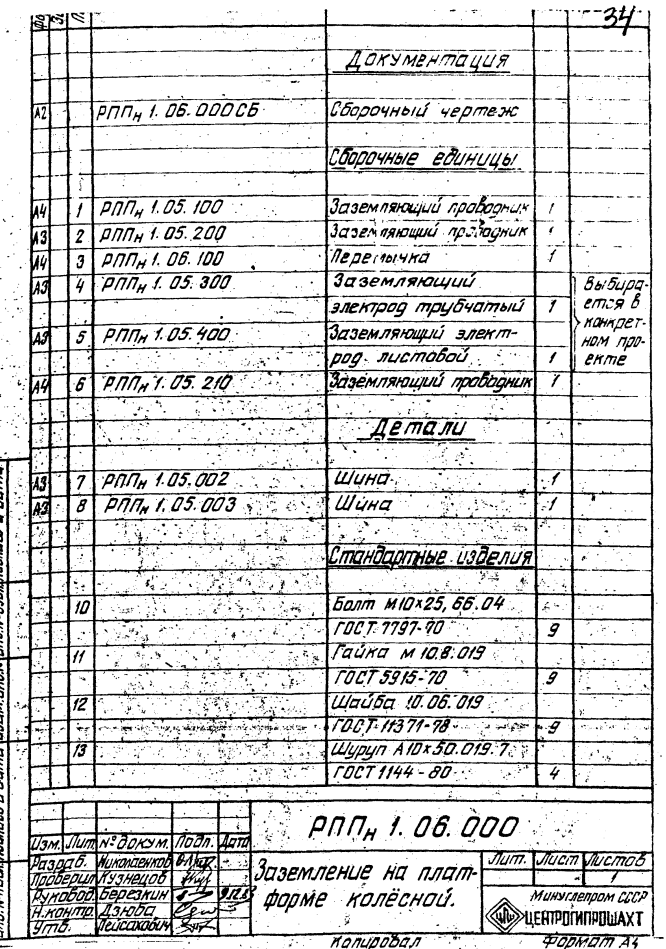 34
Документация
А2 РППн 1.06.000СБ Сборочный чертеж
Сборочные единицы
А4 1 РППн 1.05.100 Заземляющий проводник 1
А3 2 РППн 1.05.200 Заземляющий проводник 1
А4 3 РППн 1.06.100 Перемычка 1
А3 4 РППн 1.05.300 Заземляющий
электрод трубчатый 1
А3 5 РППн 1.05.400 Заземляющий элект-
род листовой 1
Выбира-
ется в
конкрет-
ном про-
екте
А4 6 РППн 1.05.210 Заземляющий проводник 1
Детали
А3 7 РППн 1.05.002 Шина 1
А3 8 РППн 1.05.003 Шина 1
Стандартные изделия
10 Болт М10×25,66.04
ГОСТ 7797-70 9
11 Гайка М 10.8.019
ГОСТ 5915-70 9
12 Шайба 10.06.019
ГОСТ 11371-78 9
13 Шуруп А10×50.019.7
ГОСТ 1144-80 4
РППн 1.06.000
Изм. Лит № докум. Подп. Дата
Разраб. Николаенков
Проверил Кузнецов
Руковод. Березкин
Н.контр. Дзюба
Утв. Лейсахович
Заземление на плат-
форме колёсной.
Лит. Лист Листов
1
Минуглепром СССР
ЦЕНТРОГИПРОШАХТ
Копировал Формат А4